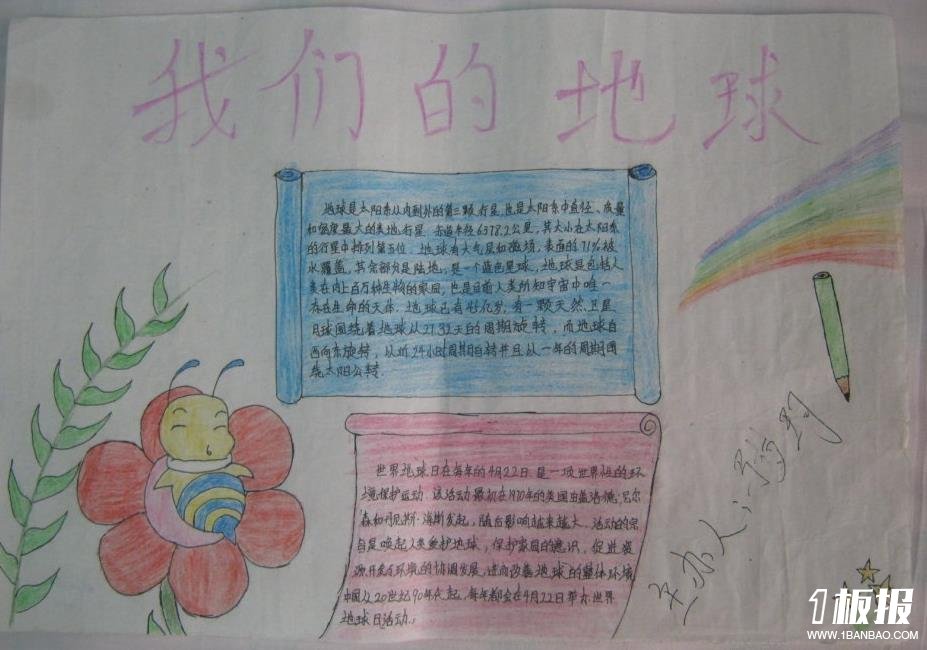 我们的地球
地球是太阳系从内到外的第三颗行星,也是太阳系中直径、质量
和密度最大的类地行星.赤道半径6378.2公里,其大小在太阳系
的行星中排列第五位.地球有大气层和磁场,表面的71%被
水覆盖,其余部分是陆地,是一个蓝色星球,地球是包括人
类在内上百万种生物的家园,也是目前人类所知宇宙中唯一
存在生命的天体.地球已有46亿岁,有一颗天然卫星
月球围绕着地球以27.32天的周期旋转,而地球自
西向东旋转,以近24小时周期自转并且以一年的周期围
绕太阳公转.
世界地球日在每年的4月22日.是一项世界性的环
境保护运动.该活动最初在1970年的美国由盖洛德·尼尔
森和丹尼斯·海斯发起,随后影响越来越大.活动的宗
旨是唤起人类爱护地球,保护家园的意识,促进资
源开发与环境的协调发展,进而改善地球的整体环境
中国从20世纪90年代起,每年都会在4月22日举办世界
地球日活动.
主办人:
1板报
WWW.1BANBAO.COM